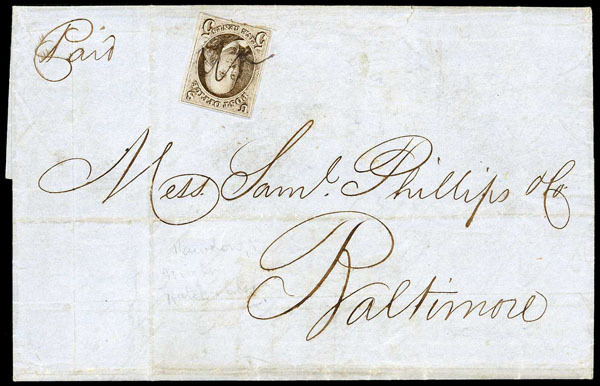 Paid
POST OFFICE
FIVE CENTS
Mess. Saml. Phillips & Co.
Baltimore